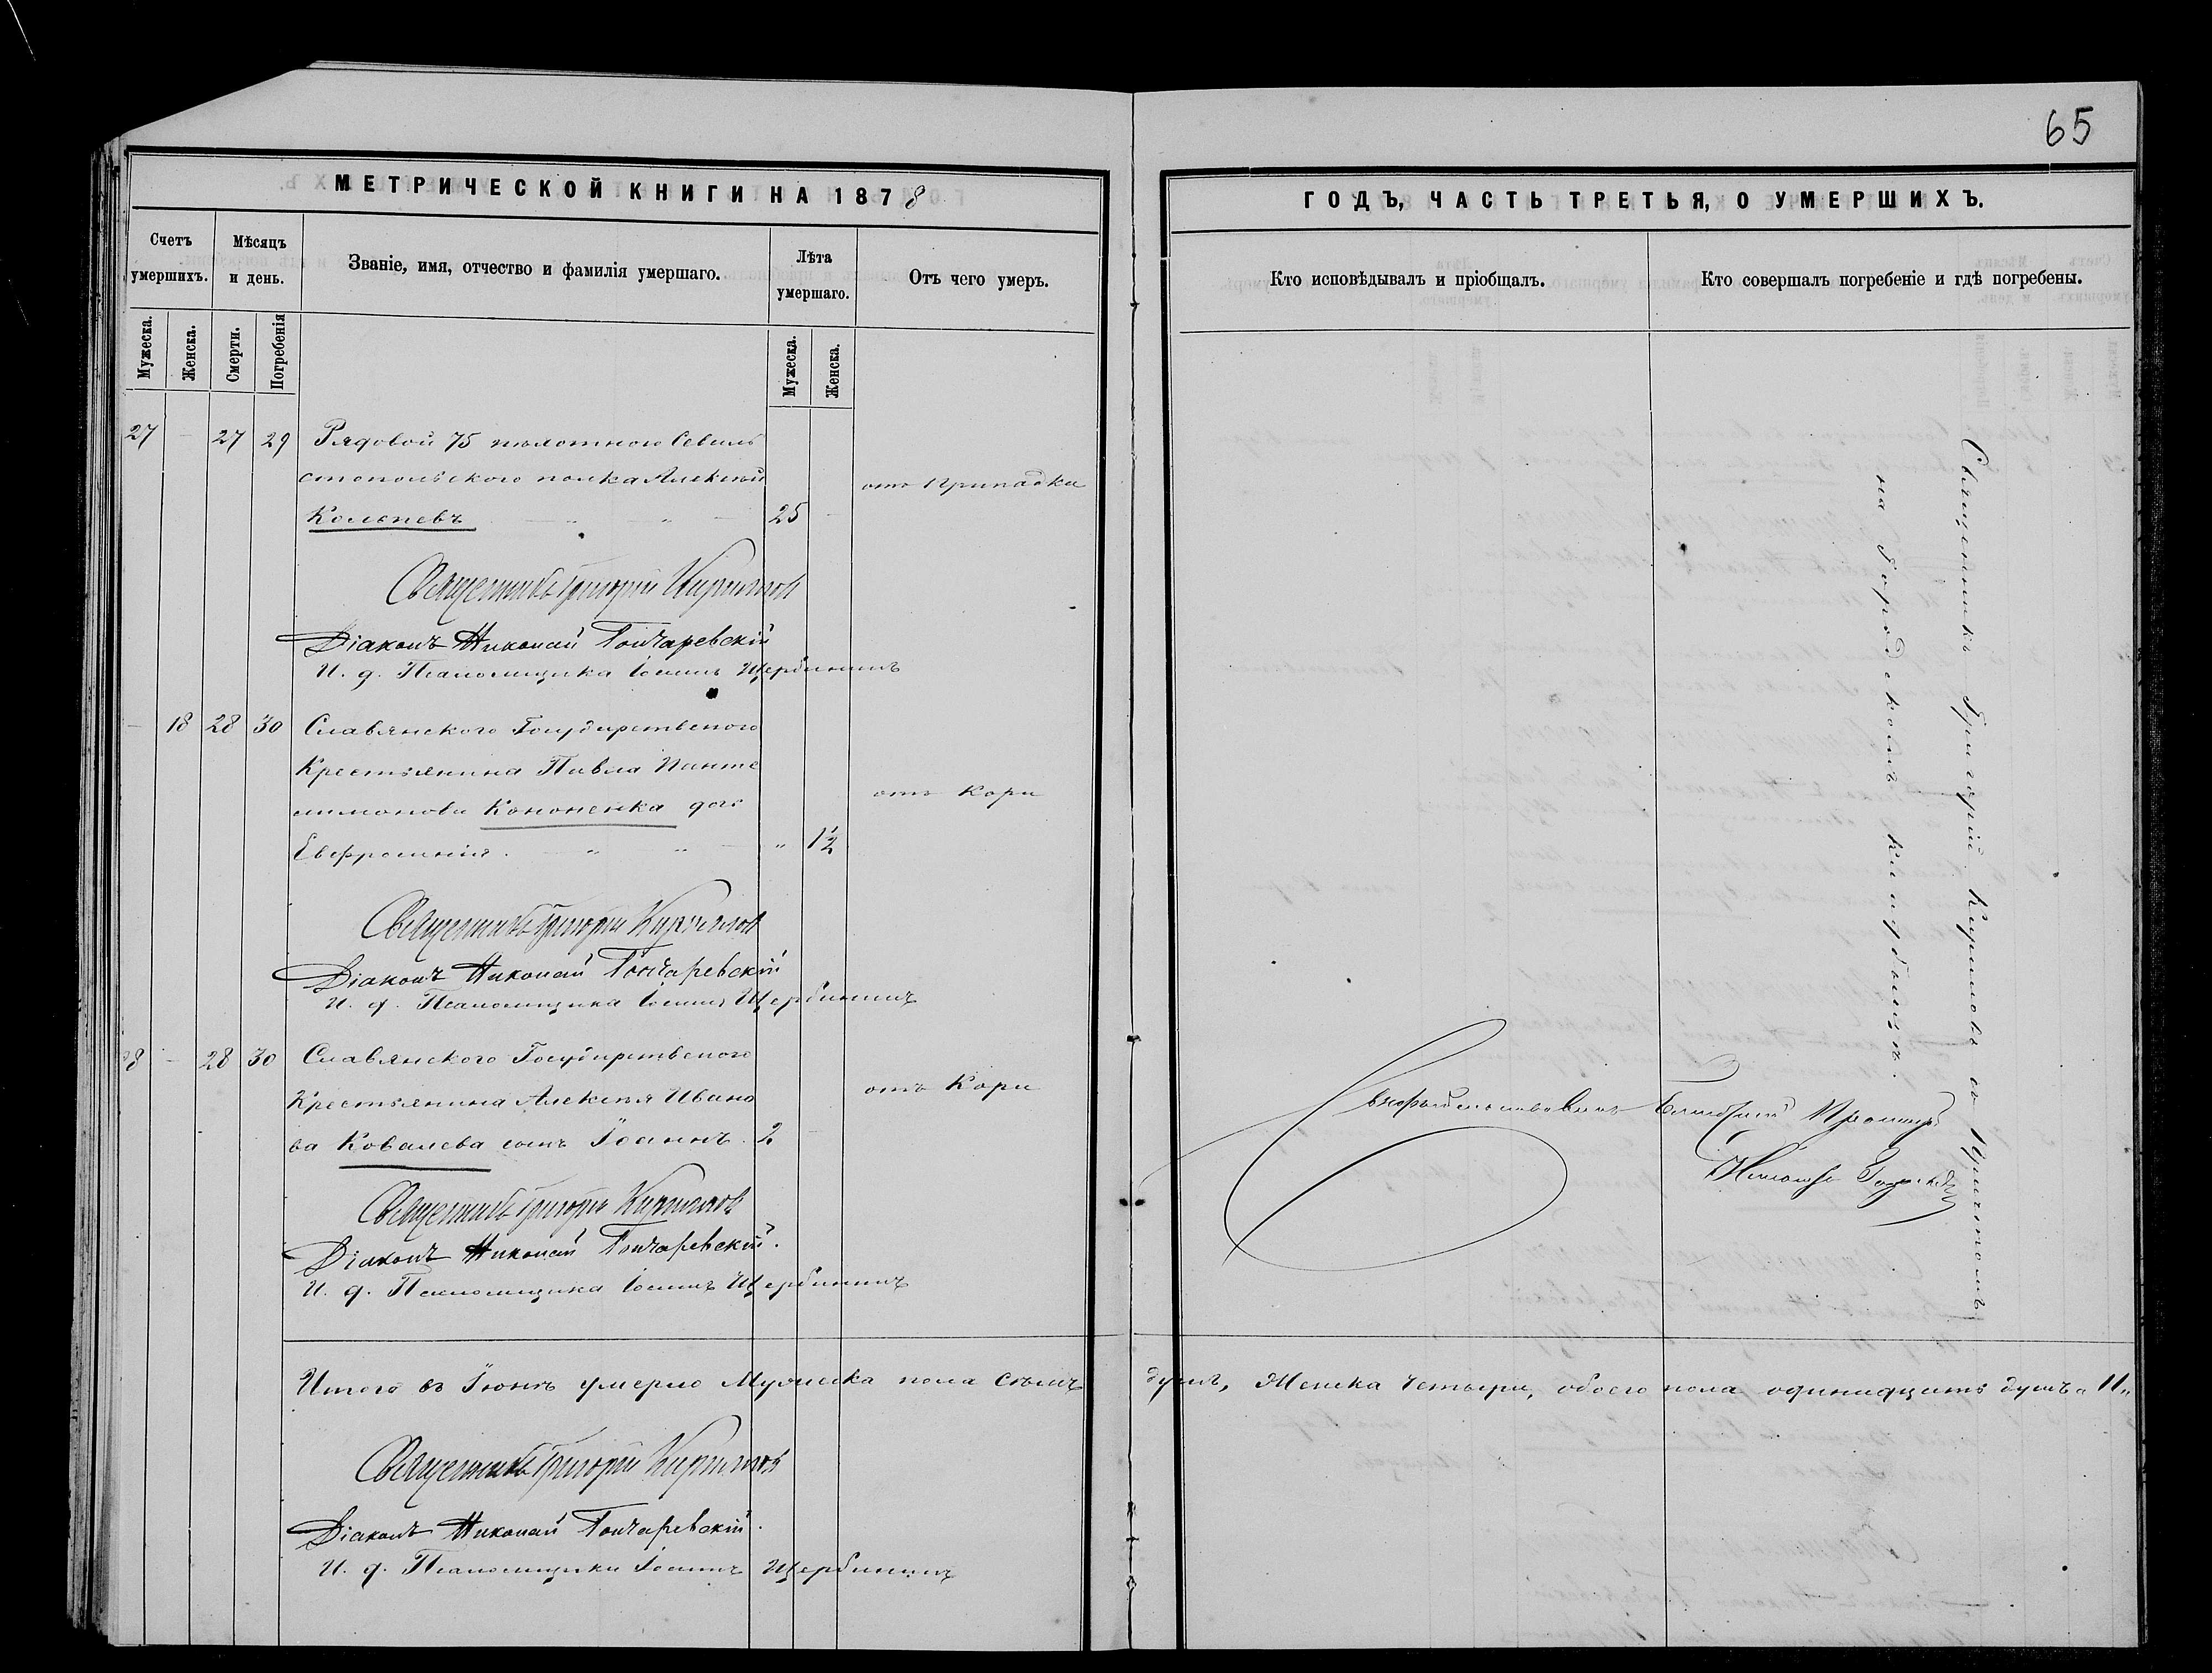 65
МЕТРИЧЕСКОЙ КНИГИ НА 1878
ГОДЪ, ЧАСТЬ ТРЕТЬЯ, О УМЕРШИХЪ.
Счетъ умершихъ.
Мѣсяцъ и день.
Званіе, имя, отчество и фамилія умершаго.
Лѣта умершаго.
Отъ чего умеръ.
Кто исповѣдывалъ и пріобщалъ.
Кто совершалъ погребеніе и гдѣ погребены.
Мужеска.
Женска.
Смерти.
Погребенія
Мужеска.
Женска.
27 - 27 29 Рядовой 75 пѣхотного Севаль
стопольского полка Алексѣй
отъ Припадка
25
Священникъ Григорій Кирилловъ
Діаконъ Николай Гончаревскій
И. д. Псаломщика Іоаннъ Щербининъ
- 18 28 30 Славянского Государственого
Крестьянина Павла Панте
леимонова Кононенка дочь
отъ Кори
Евфросинія. " " - " 1½
Священникъ Григорій Кирилловъ
Діаконъ Николай Гончаревскій
И. д. Псаломщика Іоаннъ Щербининъ
28 - 28 30 Славянского Государственого
Крестьянина Алексѣя Ивано
отъ Кори
ва Ковалева сынъ Іоаннъ. 2
Священникъ Григорій Кирилловъ
Діаконъ Николай Гончаревскій.
И. д. Псаломщика Іоаннъ Щербининъ
Священникъ Григорій Кирилловъ съ Причтомъ
на городскомъ кладбищѣ.
Итого въ Іюнѣ умерло Мужеска пола семь душъ, Женска четыри, обоего пола одинадцать душъ „11„
Священникъ Григорій Кирилловъ
Діаконъ Николай Гончаревскій.
И. д. Псаломщика Іоаннъ Щербининъ